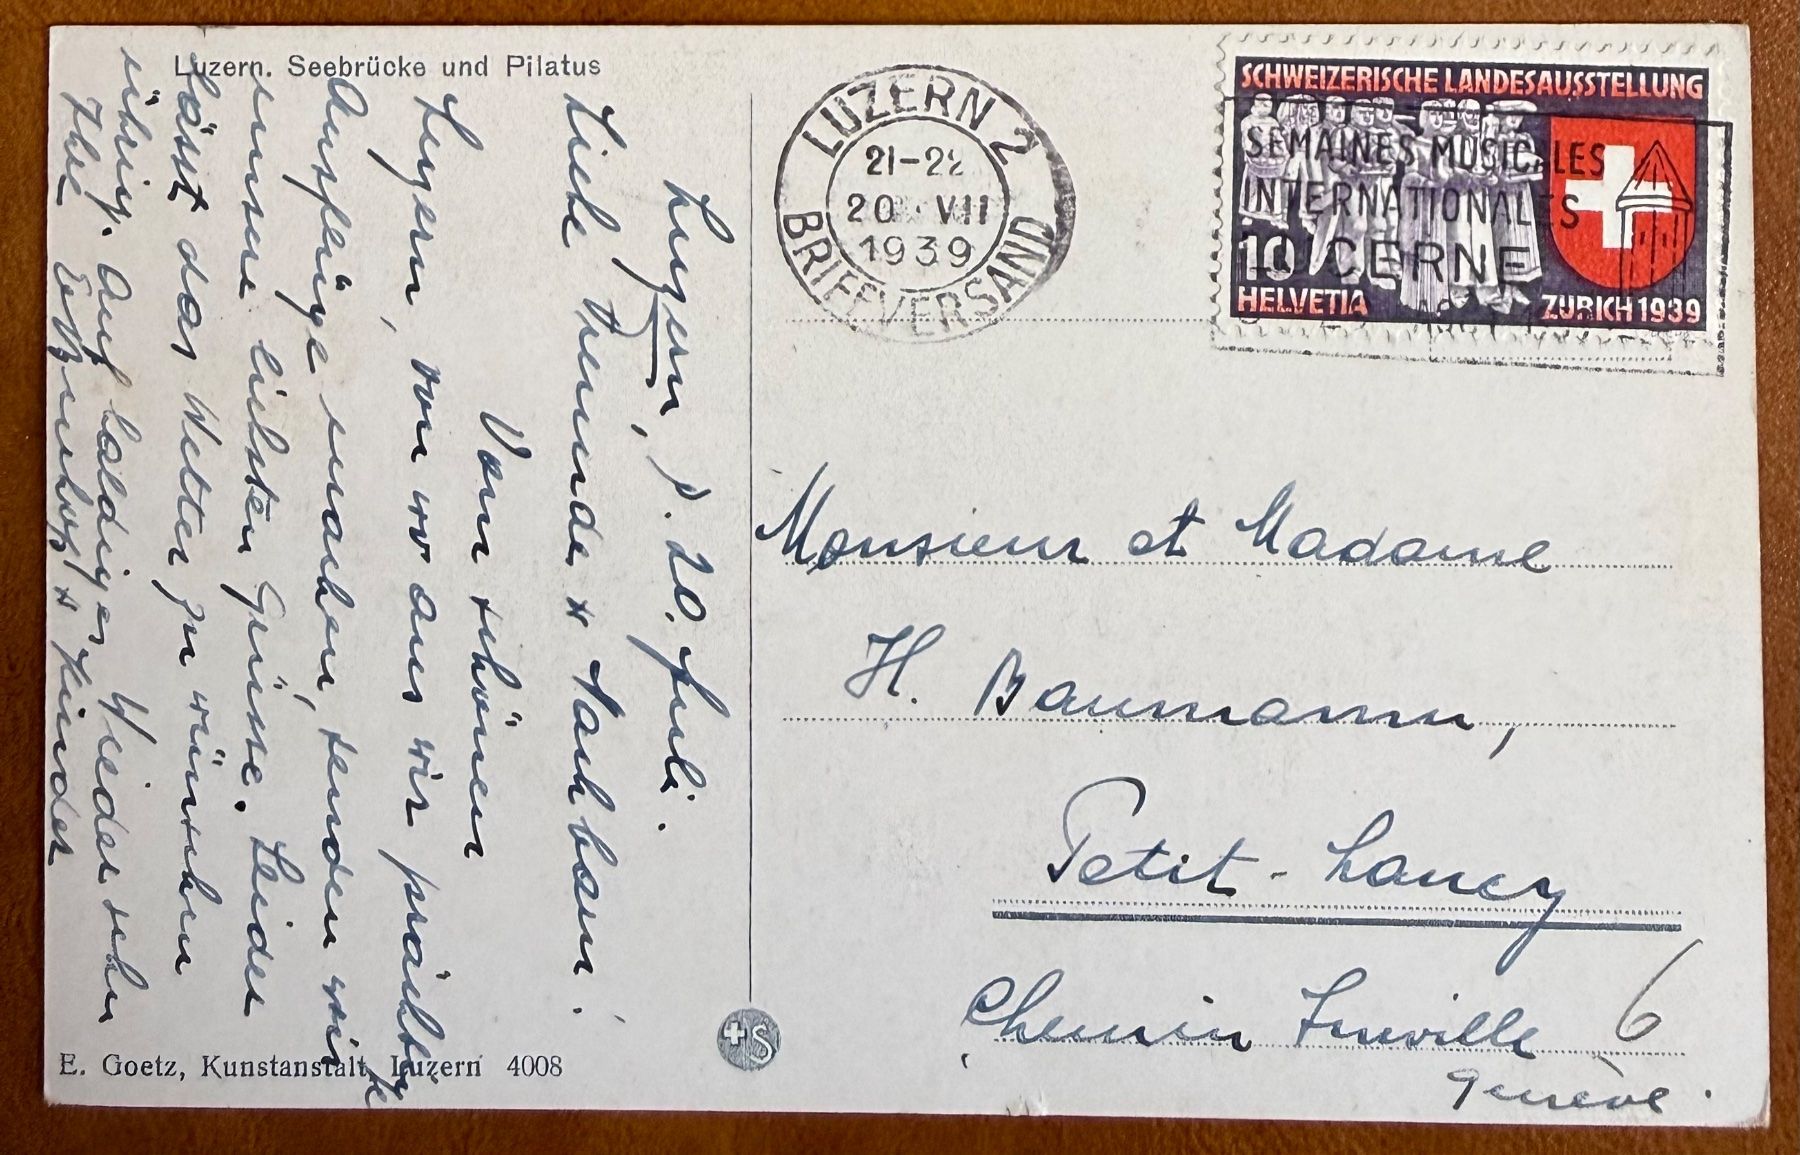 Luzern. Seebrücke und Pilatus
Luzern, d. 20. Juli.
Liebe Freunde & Nachbarn!
Vom schönen
Luzern, von wo aus wir prächtige
Ausflüge machen, senden wir
unsere liebsten Grüsse. Leider
lässt das Wetter zu wünschen
übrig. Auf baldiges Wiedersehen
Ihre & Kinder
E. Goetz, Kunstanstalt, Luzern 4008
S
LUZERN 2
21-22
20 VII
1939
BRIEFVERSAND
SCHWEIZERISCHE LANDESAUSSTELLUNG
10
HELVETIA
ZÜRICH 1939
SEMAINES MUSICALES
INTERNATIONALES
LUCERNE
Monsieur et Madame
H. Baumann,
Petit-Lancy
Chemin 6
Genève.